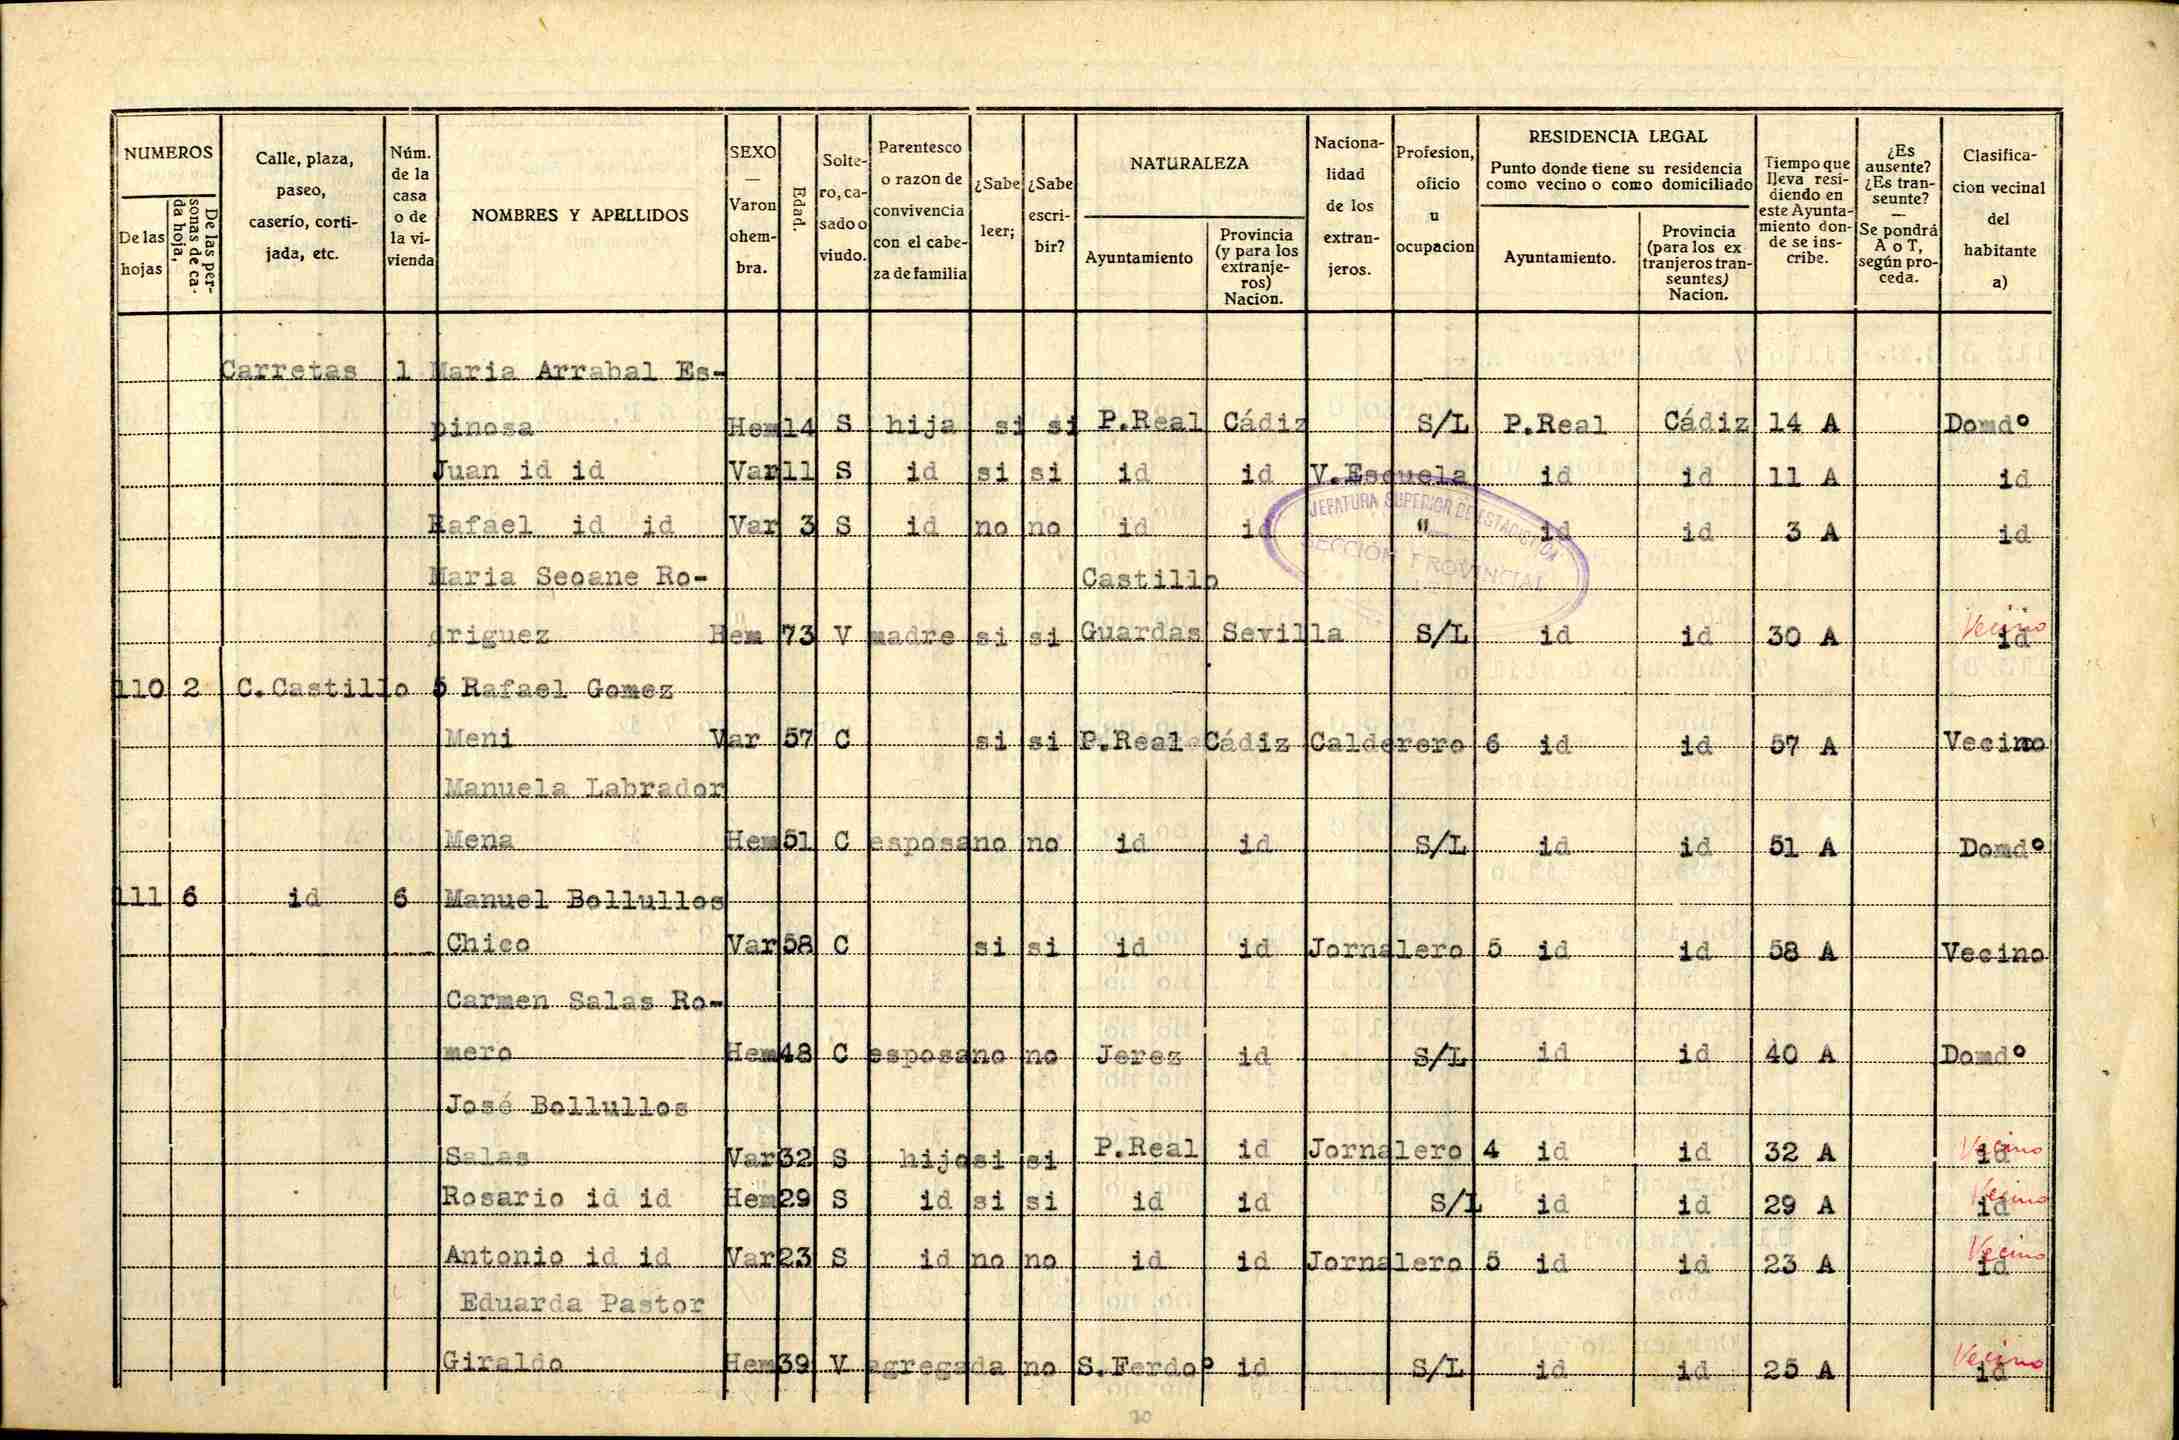 NUMEROS
De las hojas
De las personas de cada hoja,
Calle, plaza, paseo, caserío, cortijada, etc.
Núm. de la casa o de la vivienda
NOMBRES Y APELLIDOS
SEXO — Varon ohembra.
Edad.
Soltero, casado o viudo.
Parentesco o razon de convivencia con el cabeza de familia
¿Sabe leer;
¿Sabe escribir?
NATURALEZA
Ayuntamiento
Provincia (y para los extranjeros) Nacion.
Nacionalidad de los extranjeros.
Profesion, oficio u ocupacion
RESIDENCIA LEGAL
Punto donde tiene su residencia como vecino o como domiciliado
Ayuntamiento.
Provincia (para los extranjeros transeuntes) Nacion.
Tiempo que lleva residiendo en este Ayuntamiento donde se inscribe.
¿Es ausente? ¿Es transeunte? — Se pondrá A o T, según proceda.
Clasificacion vecinal del habitante a)
Carretas 1 Maria Arrabal Es-
pinosa Hem 14 S hija si si P.Real Cádiz S/L P.Real Cádiz 14 A Domdº
Juan id id Var 11 S id si si id id V.Escuela id id 11 A id
Rafael id id Var 3 S id no no id id " id id 3 A id
JEFATURA SUPERIOR DE ESTADISTICA
SECCIÓN PROVINCIAL
Maria Seoane Ro- Castillo
driguez Hem 73 V madre si si Guardas Sevilla S/L id id 30 A id Vecino
110 2 C.Castillo 5 Rafael Gomez
Meni Var 57 C si si P.Real Cádiz Calderero 6 id id 57 A Vecino
Manuela Labrador
Mena Hem 51 C esposa no no id id S/L id id 51 A Domdº
111 6 id 6 Manuel Bollullos
Chico Var 58 C si si id id Jornalero 5 id id 58 A Vecino
Carmen Salas Ro-
mero Hem 48 C esposa no no Jerez id S/L id id 40 A Domdº
José Bollullos
Salas Var 32 S hijo si si P.Real id Jornalero 4 id id 32 A id Vecino
Rosario id id Hem 29 S id si si id id S/L id id 29 A id Vecino
Antonio id id Var 23 S id no no id id Jornalero 5 id id 23 A id Vecino
Eduarda Pastor
Giraldo Hem 39 V agregada no S.Ferdoº id S/L id id 25 A id Vecino